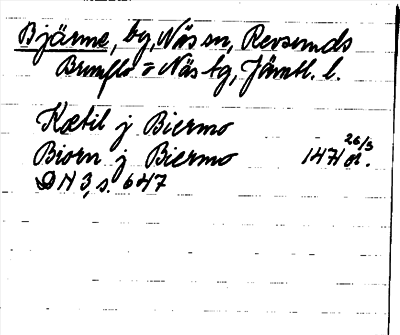 Bjärme, by, Näs sn, Revsunds
Brunflo o Näs tg, Jämtl. l.
Kætil j Biermo
Biorn j Biermo 1471 26/3 or.
DN 3, s. 647